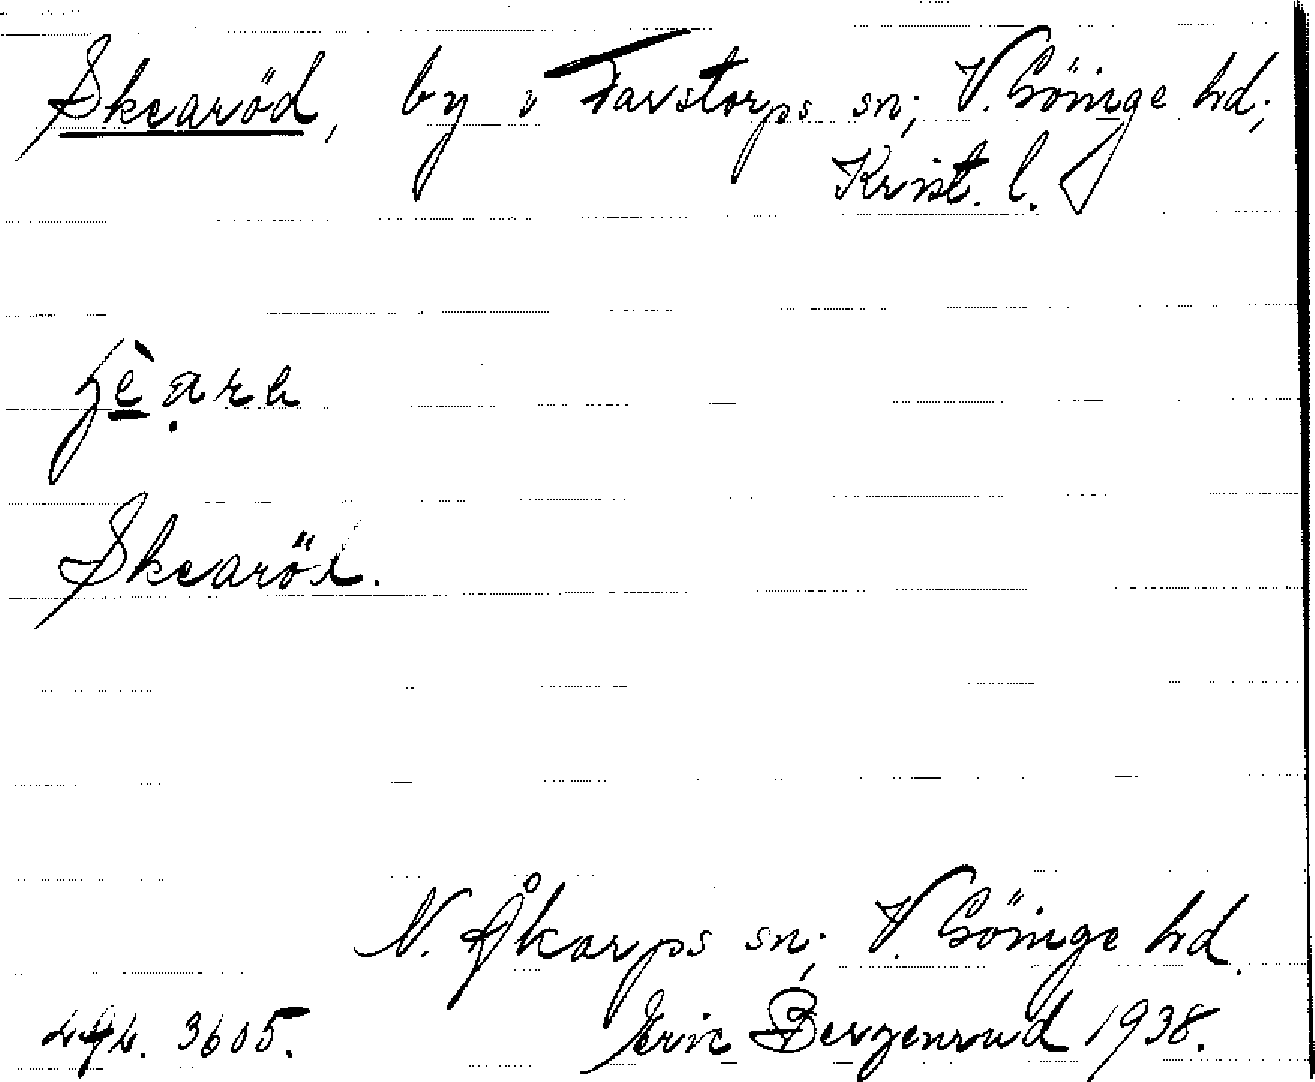 Skearöd, by i Farstorps sn; V. Göinge hd;
Krist. l.
Skearöd.
N. Åkarps sn; V. Göinge hd.
3605. Eric Bergenrud 1938.